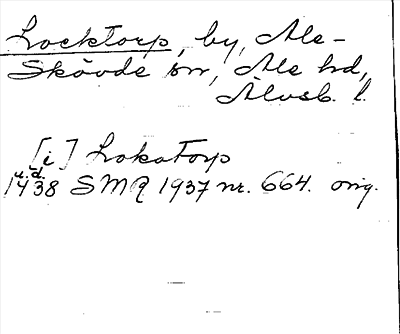 Locktorp, by, Ale-
Skövde sn, Ale hd,
Älvsb. l.
[i] Lokatorp
u.d.
1438 SMR 1937 nr. 664. orig.